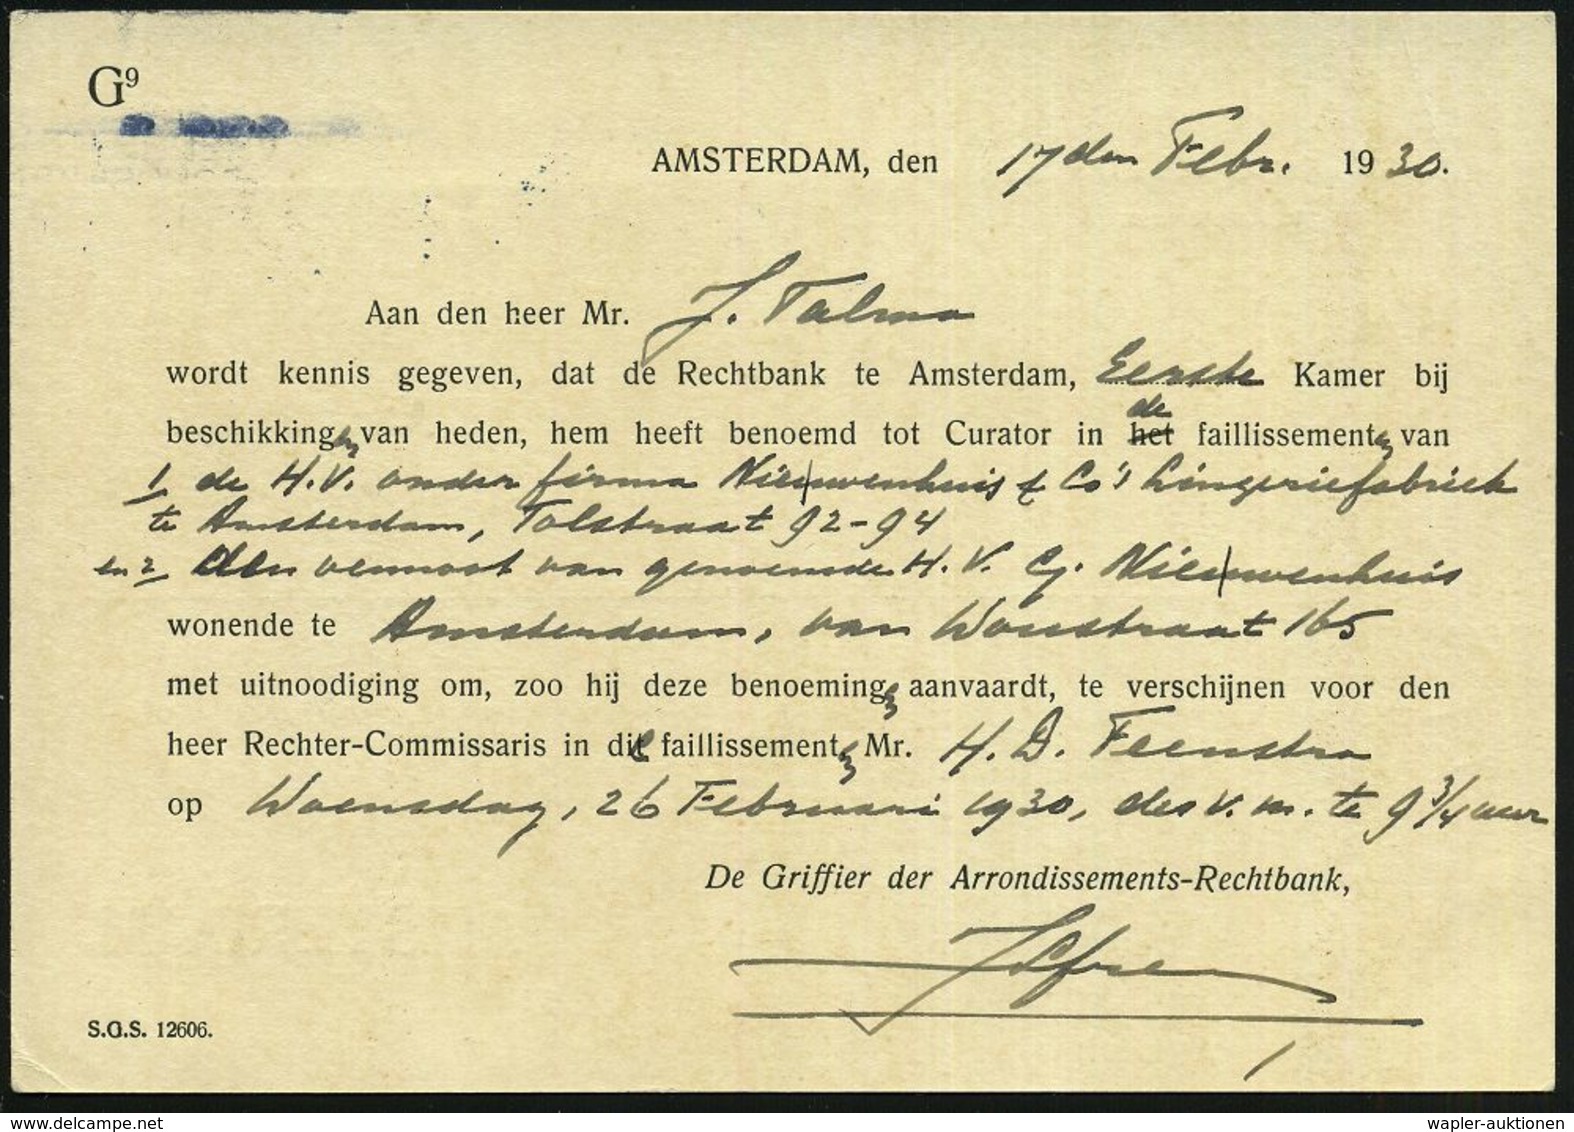 G9
AMSTERDAM, den 17den Febr. 1930.
Aan den heer Mr. J. Talma
wordt kennis gegeven, dat de Rechtbank te Amsterdam, Eerste Kamer bij
de
beschikkingen van heden, hem heeft benoemd tot Curator in het faillissementen van
1/ de H.V. onder firma Nieuwenhuis & Co's Lingeriefabriek
te Amsterdam, Tolstraat 92-94
en 2/ den vennoot van genoemde H.V. Nieuwenhuis
wonende te Amsterdam, van Woustraat 165
met uitnoodiging om, zoo hij deze benoemingen aanvaardt, te verschijnen voor den
heer Rechter-Commissaris in die faillissementen Mr. H. D. Feenstra
op Woensdag, 26 Februari 1930, des v.m. te 9 3/4 uur
De Griffier der Arrondissements-Rechtbank,
S.G.S. 12606.
wapler-auktionen